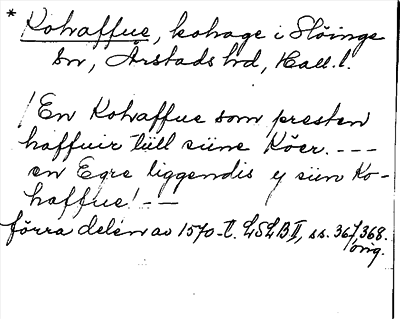 * Kohaffue, kohage i Slöinge
sn, Årstads hd, Hall. l.
/En Kohaffue som presten
haffuir till siine Köer. ---
en Egre liggendis y siin Ko-
haffue! --
förra delen av 1570-t. LSLB II, ss. 367, 368.
orig.